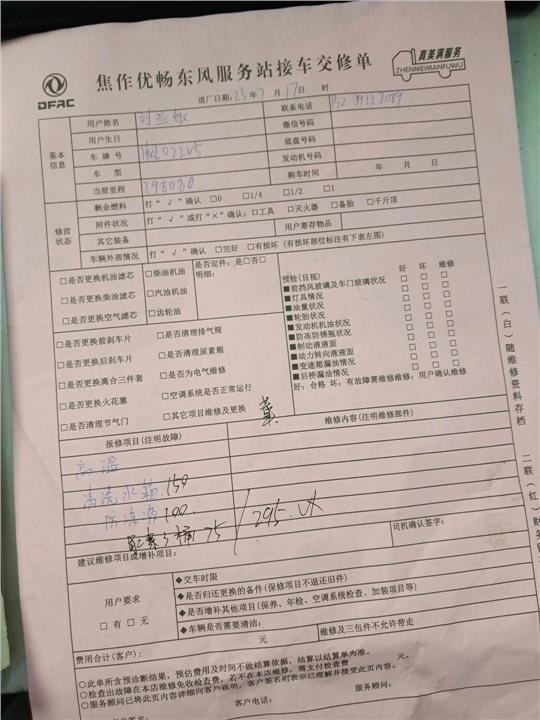 DFAC
焦作优畅东风服务站接车交修单
真美满服务
ZHENMEIMANFUWU
进厂日期:25年7月17日 时
基本信息
用户姓名 联系电话
用户生日 微信号码
车牌号 底盘号码
车型 发动机号码
当前里程 798080 购车时间 年 月 日
修前状态
剩余燃料 打“√”确认 □0 □1/4 □1/2 □1
附件状况 打“√”或打“×”确认:□工具 □灭火器 □备胎 □千斤顶
其它装备 用户寄存物品
车辆外部情况 打“√”确认 □完好 □有损坏(有损坏部位标注有下表左图)
□是否更换机油滤芯 □柴油机油
□是否更换柴油滤芯 □汽油机油
□是否更换空气滤芯 □齿轮油
是否定件:是□否□
明细:
□是否更换前刹车片 □是否清理排气筒
□是否更换后刹车片 □是否清理尿素箱
□是否更换离合三件套 □是否为电气维修
□是否更换火花塞 □空调系统是否正常运行
□是否清理节气门 □其它项目维修及更换
预检(目视) 好 坏 维修
■前挡风玻璃及车门玻璃状况 □ □ □
■灯具情况 □ □ □
■油量状况 □ □ □
■轮胎状况 □ □ □
■发动机机油状况 □ □ □
■防冻防锈瓶状况 □ □ □
■制动液液面 □ □ □
■动力转向液液面 □ □ □
■变速箱漏油情况 □ □ □
■后桥漏油情况 □ □ □
好:合格 坏:有故障需维修维修:用户确认维修
报修项目(注明故障) 维修内容(注明维修部件)
高温
清洗水箱 150
防冻液 100
尿素3桶 75 / 295.
司机确认签字:
建议维修项目或增补项目:
用户要求
□有 □无
◆交车时限
◆是否归还更换的备件(保修项目不退还旧件)
◆是否增补其他项目(保养、年检、空调系统检查、加装项目等)
◆车辆是否需要清洁: 维修及三包件不允许带走
费用合计(客户): 元
○此单所含预诊断结果,预估费用及时间不做结算依据,结算以结算单为准。
○检查出故障在本店维修免收检查费,若不在本店维修,需支付检查费 元。
○服务顾问已将此页内容详细向客户说明,客户签名则表示已理解并接受此页内容。
服务顾问:
客户电话:
一联(白)随维修资料存档 二联(红)